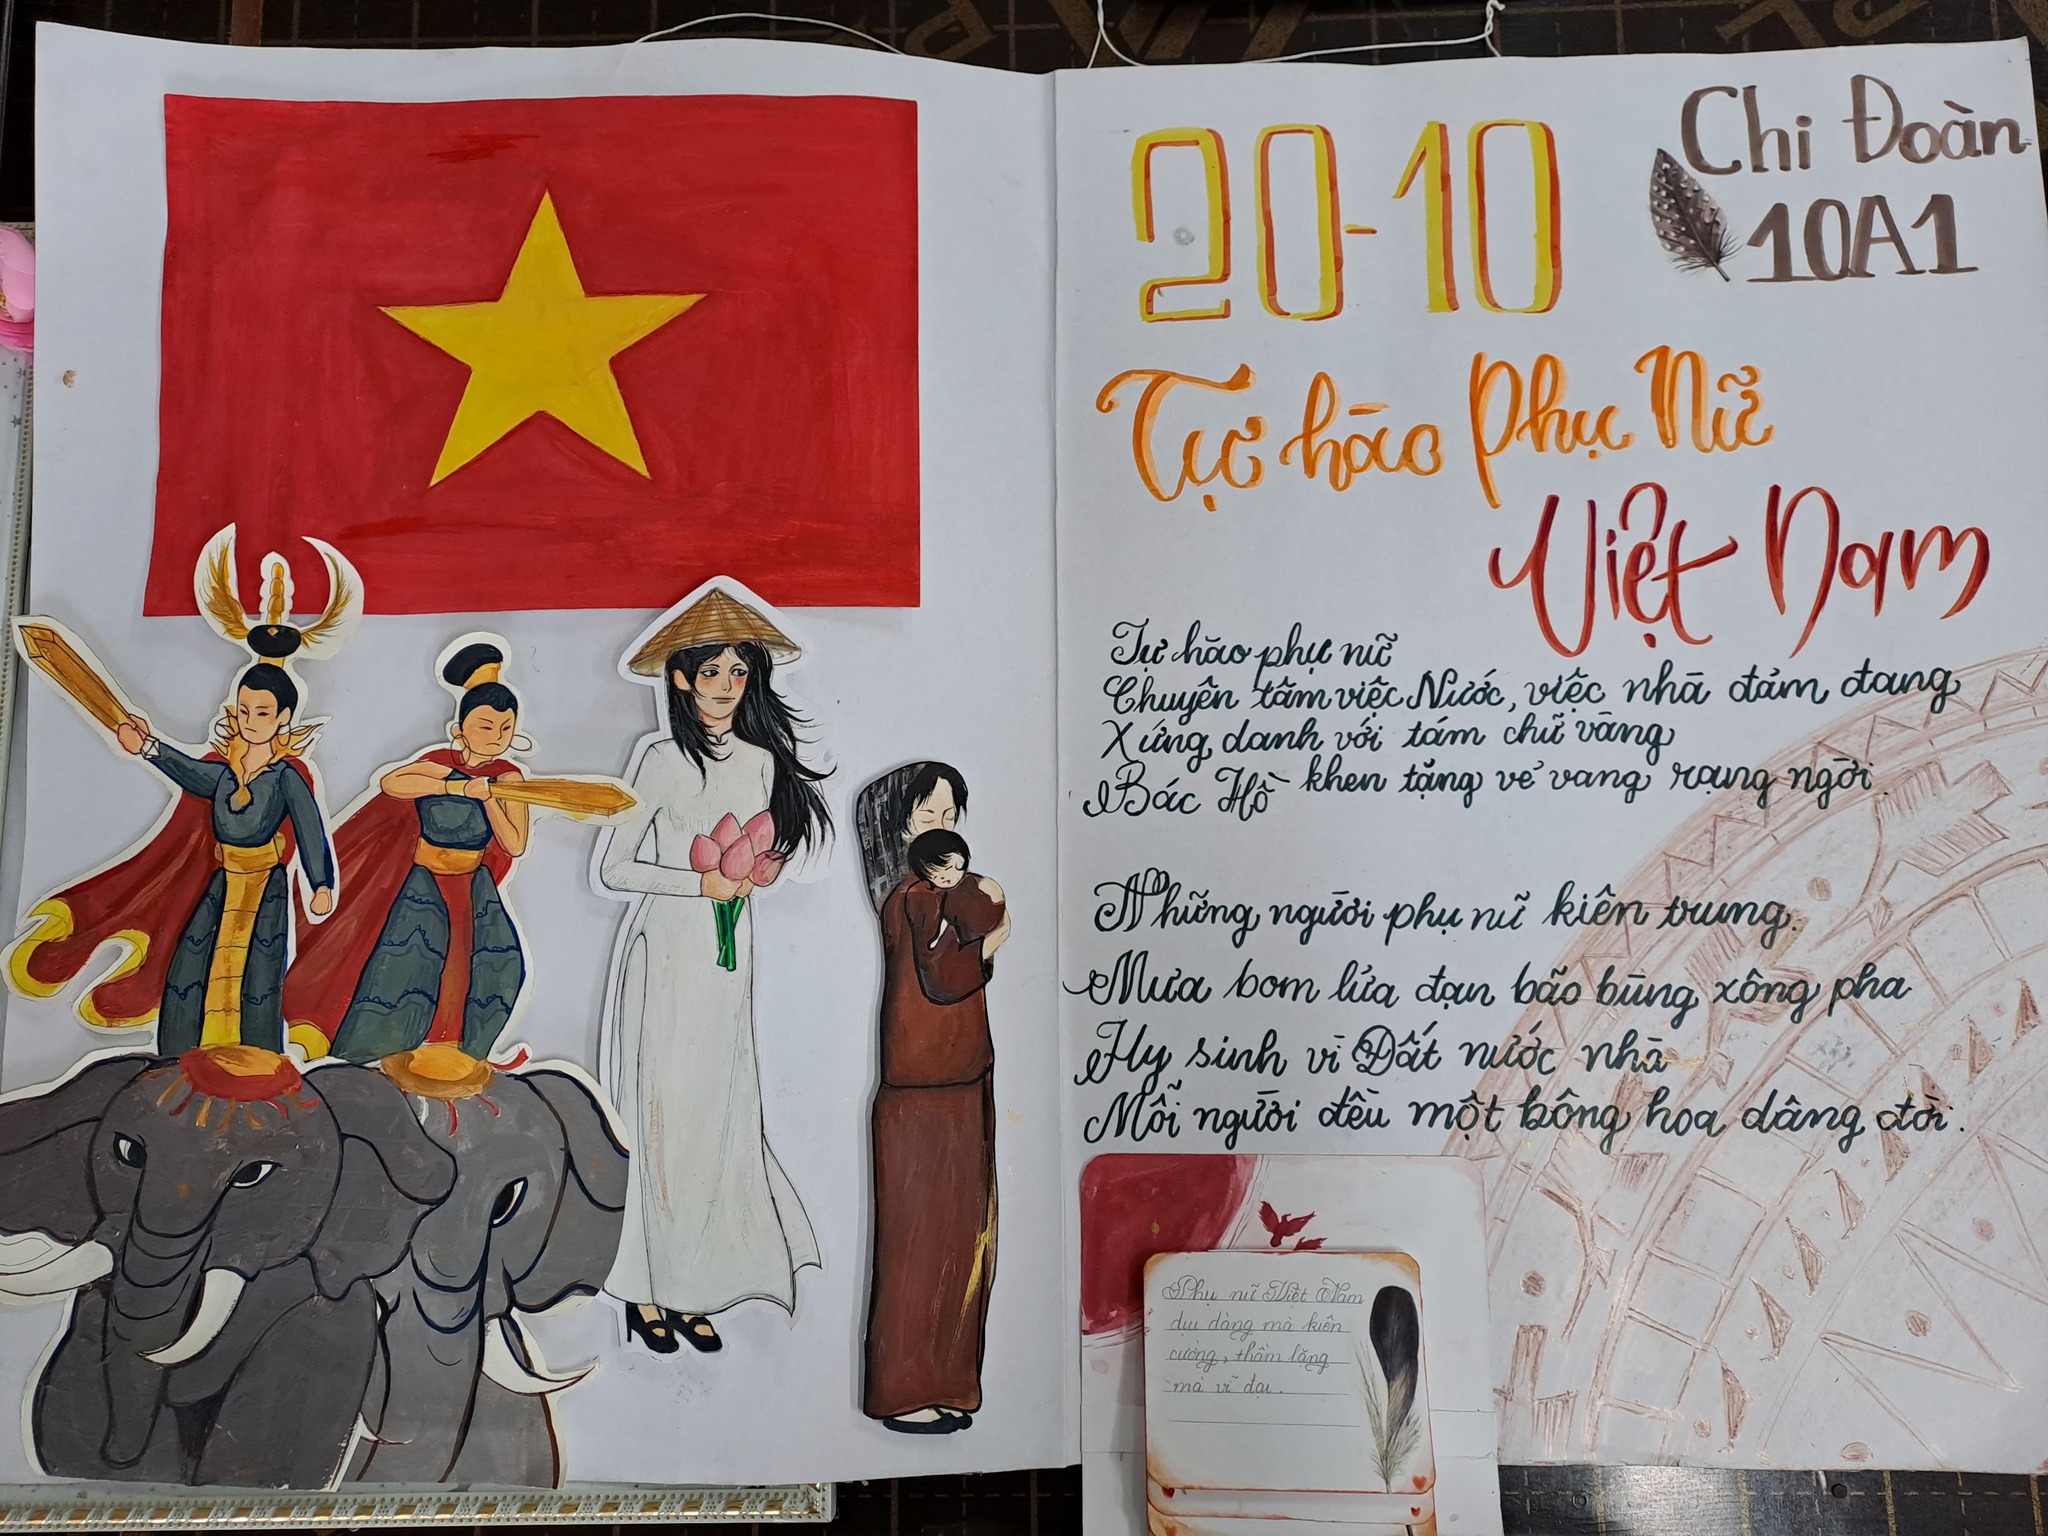 20-10
Chi Đoàn
10A1
Tự hào Phụ Nữ
Việt Nam
Tự hào phụ nữ
Chuyên tâm việc Nước, việc nhà đảm đang
Xứng danh với tám chữ vàng
Bác Hồ khen tặng vẻ vang rạng ngời.
Những người phụ nữ kiên trung.
Mưa bom lửa đạn bão bùng xông pha
Hy sinh vì Đất nước nhà
Mỗi người đều một bông hoa dâng đời.
Phụ nữ Việt Nam
dịu dàng mà kiên
cường, thầm lặng
mà vĩ đại.